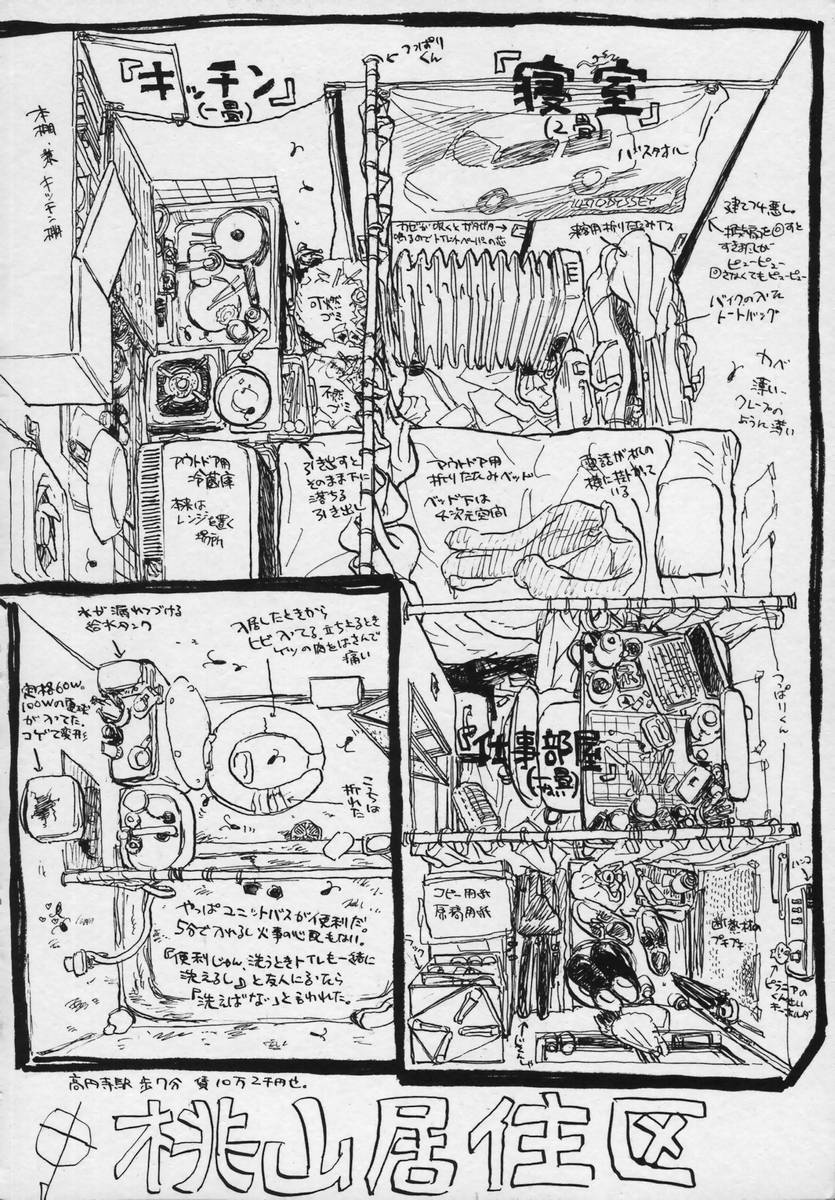 つっぱり
くん
『キッチン』
(一畳)
『寝室』
(2畳)
本棚・兼・キッチン棚
バスタオル
来客用折りたたみイス
建てつけ悪し。
すき間風が
ピューピュー
バイクの入った
トートバッグ
カベ
薄い、
クレープの
ように薄い
可燃
ゴミ
不燃
ゴミ
アウトドア用
冷蔵庫
本来は
レンジを置く
場所
引き出すと
そのまま下に
落ちる
引き出し
アウトドア用
折りたたみベッド
ベッド下は
4次元空間
電話が机の
横に掛かって
いる
水が漏れつづける
給水タンク
入居したときから
ヒビ入ってる。立ち上るとき
ケツの肉をはさんで
痛い
定格60W。
100Wの電球
が入ってた。
コゲて変形
こっちは
折れた
つっぱりくん
『仕事部屋』
(一畳)
やっぱユニットバスが便利だ
5分で入れるし火事の心配もない。
『便利じゃん、洗うときトイレも一緒に
洗えるし』と友人に言ったなら
『洗えばな』と言われた。
コピー用紙
原稿用紙
断熱材の
プチプチ
ハンコ
ピラニアの
くん出し
キーホルダ
高円寺駅 歩7分 賃10万2千円也。
桃山居住区